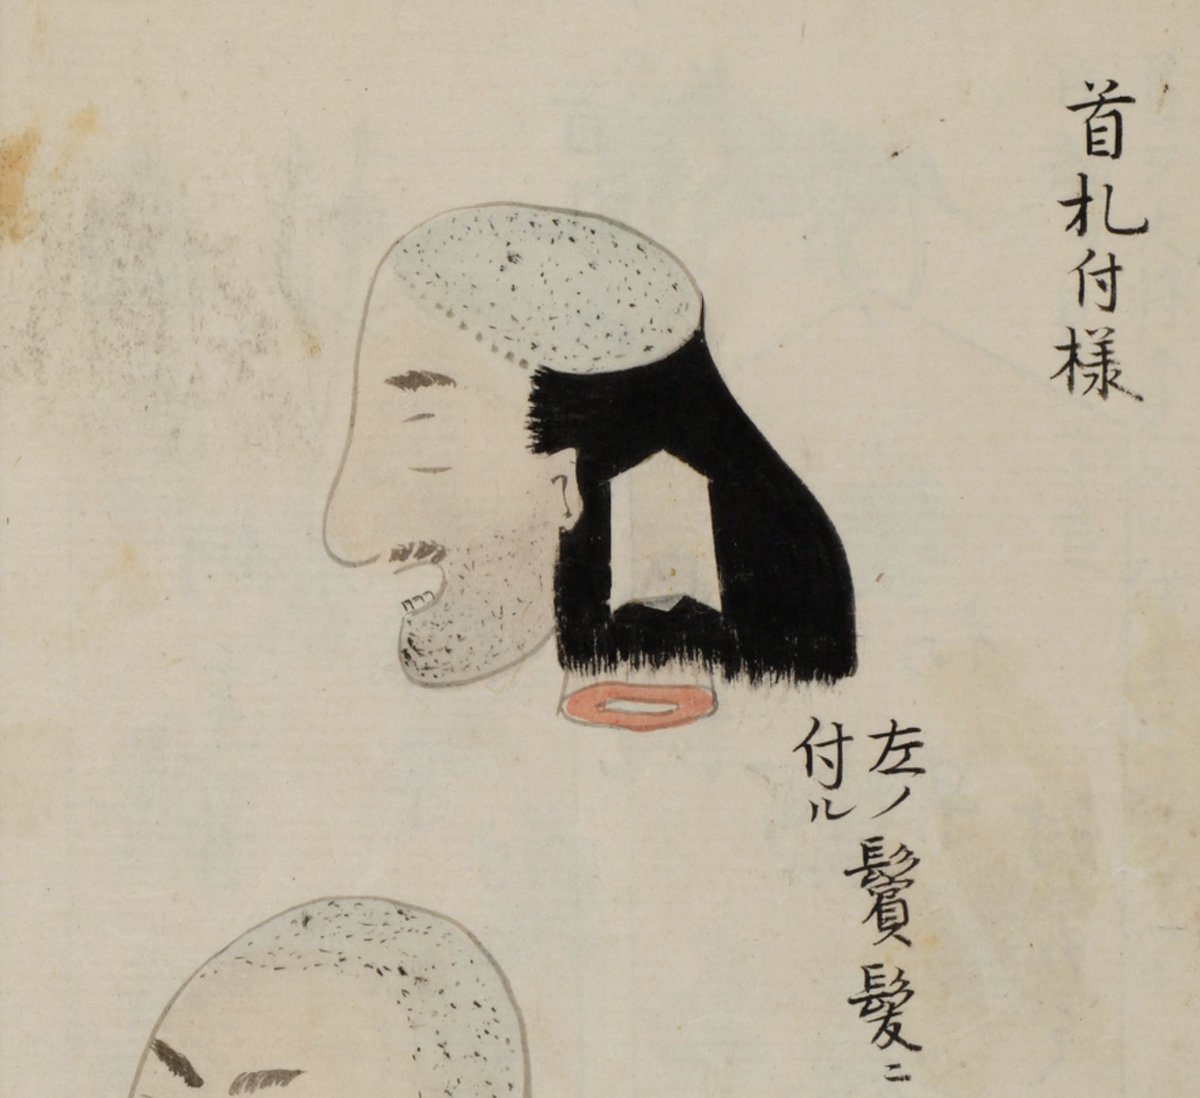 首札付様
左ノ鬢髪ニ
付ル